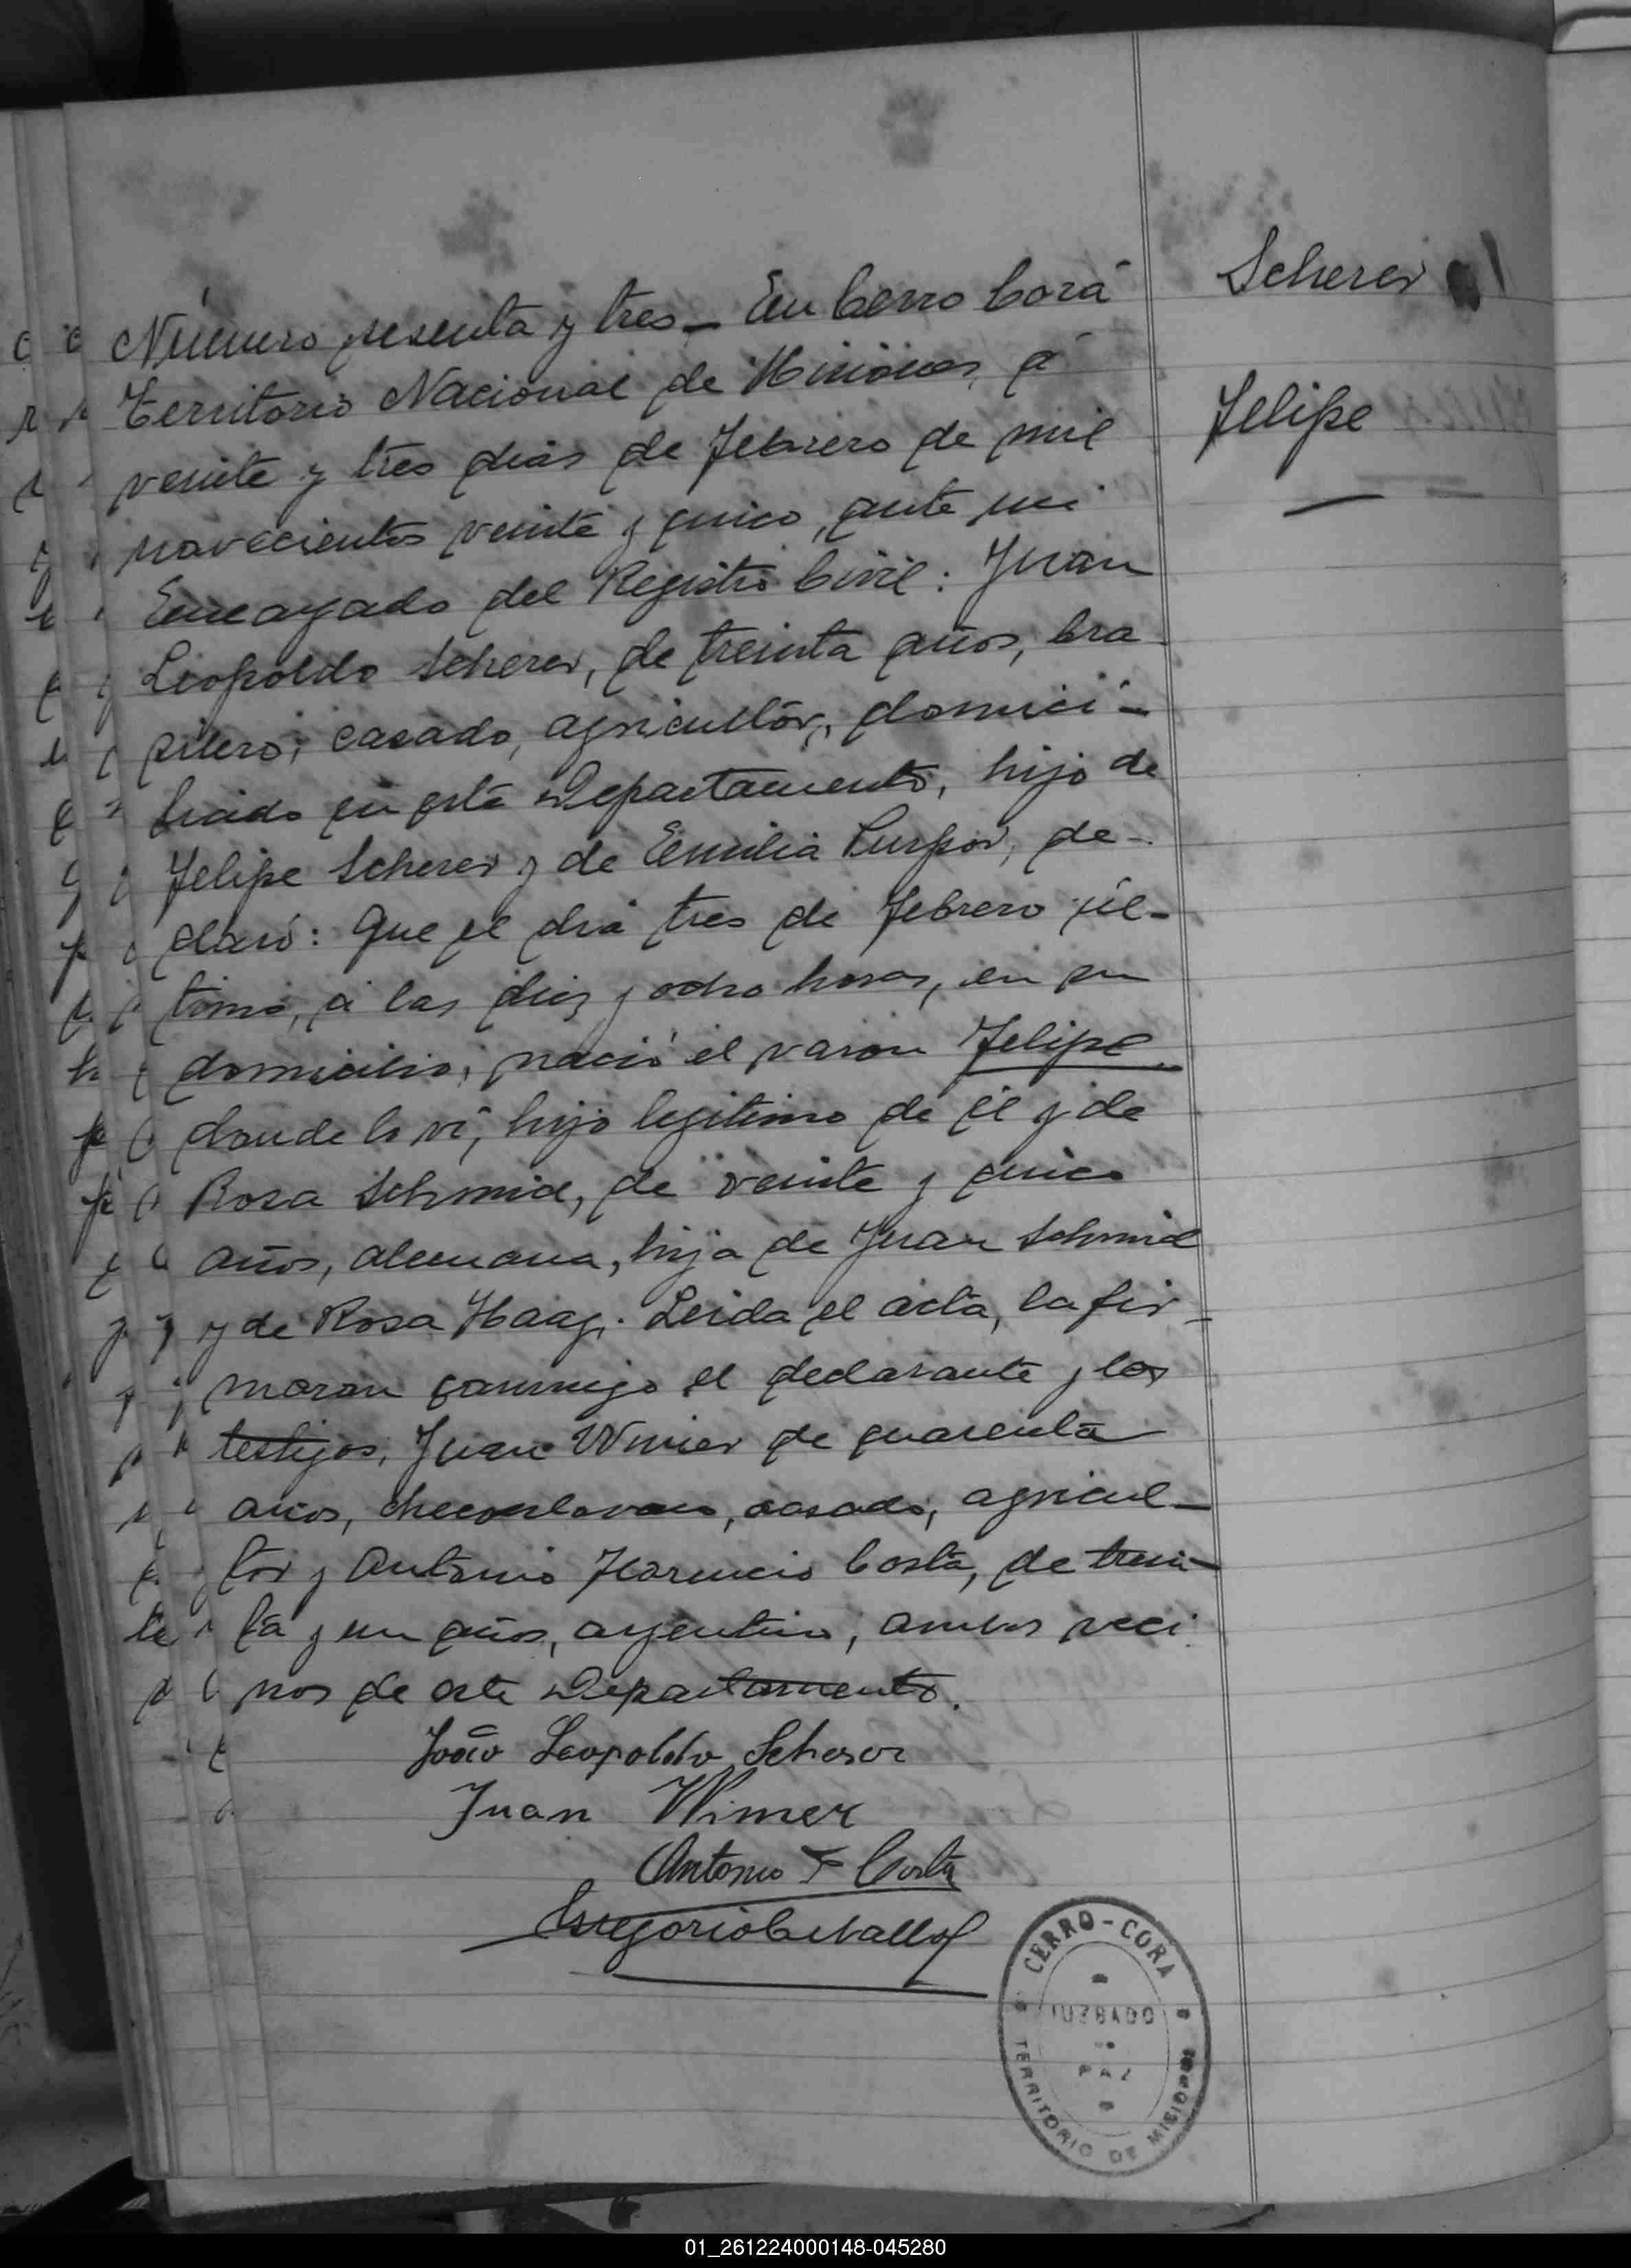 Scherer
Felipe
Número sesenta y tres_ En Cerro Corá
Territorio Nacional de Misiones, á
veinte y tres dias de Febrero de mil
novecientos veinte y cinco, ante mi
Encargado del Registro Civil: Juan
Leopoldo Scherer, de treinta años, bra
silero, casado, agricultor, domici-
liado en este Departamento, hijo de
Felipe Scherer y de Emilia, de-
claró: Que el dia tres de Febrero úl-
timo, á las diez y ocho horas, en su
domicilio, nació el varon Felipe
donde lo vi, hijo legitimo de él y de
Rosa Schmid, de veinte y cinco
años, alemana, hija de Juan Schmid
y de Rosa Haag. Leida el acta, la fir-
maron conmigo el declarante y los
testigos, Juan Wimer de cuarenta
años, checoeslovaco, casado, agricul-
tor y Antonio Florencio Costa, de trein-
ta y un años, argentino, ambos veci
nos de este Departamento.
João Leopoldo Scherer
Juan Wimer
Antonio F Costa
Gregorio Cevallos
CERRO-CORÁ
JUZGADO
DE
PAZ
TERRITORIO DE MISIONES
01_261224000148-045280